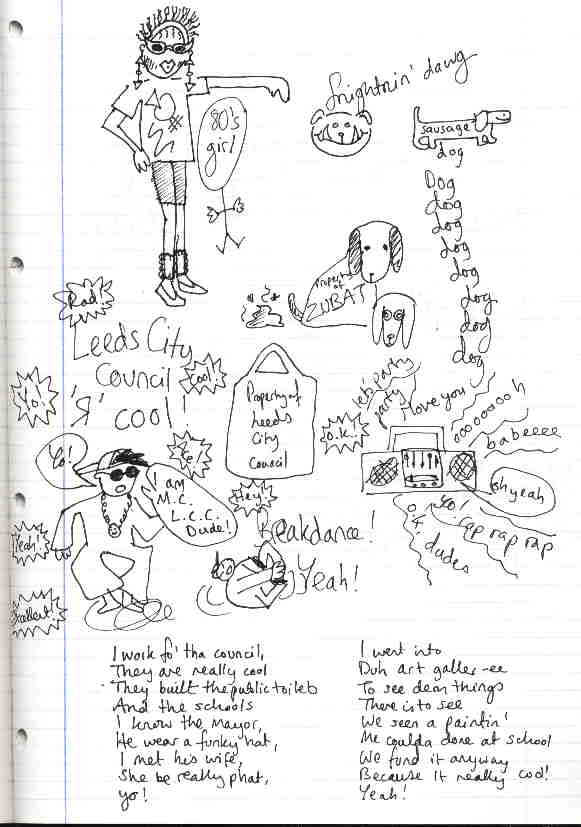 frightnin' dawg
80's
girl
sausage
dog
Dog
dog
dog
dog
dog
dog
dog
dog
Property of
ZUBAT
Rad!
Leeds City
Council
'Я' cool!
Cool!
Yo.
Property of
Leeds
City
Council
let's party
party
I love you
oooooooo h
babeeee
O.K.
oh yeah
Yo!
rap rap rap
dudes
Yo!
I am
M.C.
L.C.C.
Dude!
Hey!
Breakdance!
Yeah!
Yeah!
Excellent!
I work fo' tha council,
They are really cool
They built the public toilets
And the schools
I know the Mayor,
He wear a funky hat,
I met his wife,
She be really phat,
yo!
I went into
Duh art galler-ee
To see dem things
There is to see
We seen a paintin'
Me coulda done at school
We fund it anyway
Because it really cool!
Yeah!